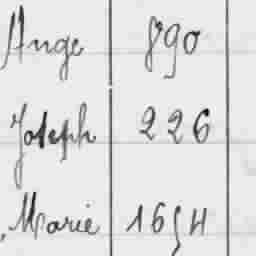 Ange 890
Joseph 226
Marie 1654